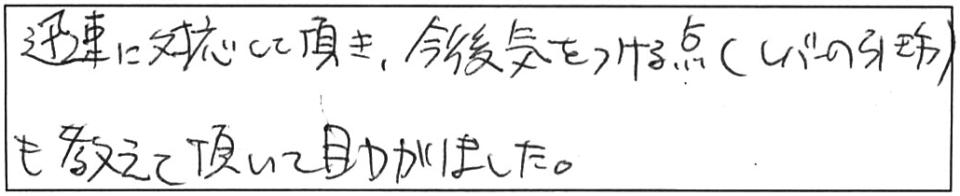 迅速に対応して頂き、今後気をつける点(レバーの引き方)
も教えて頂いて助かりました。